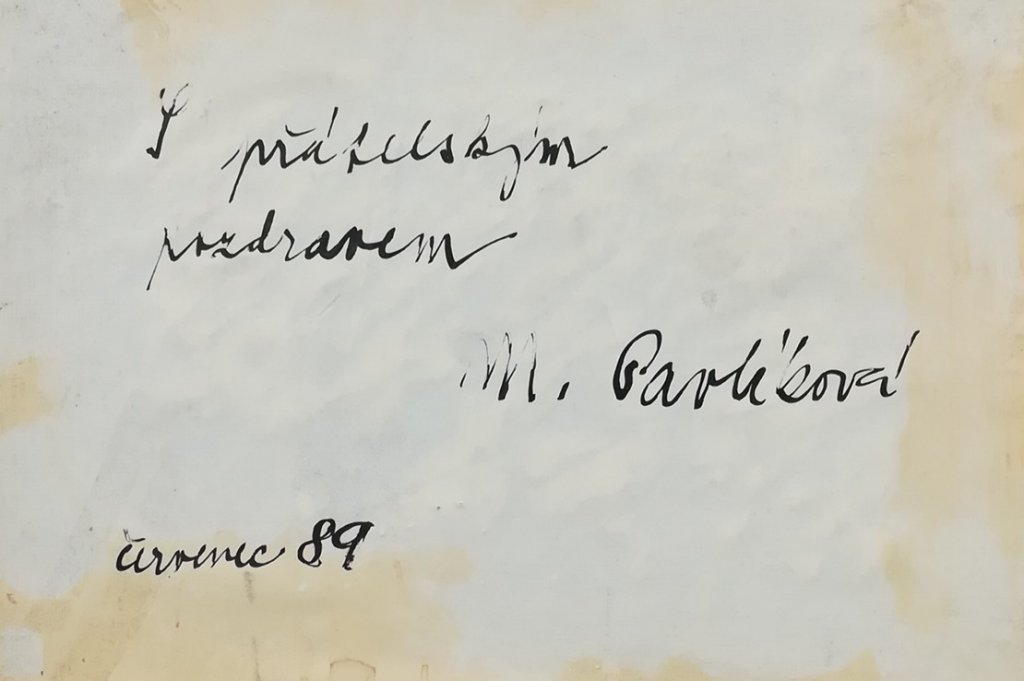 S přátelským
pozdravem
M. Pavlíková
červenec 89